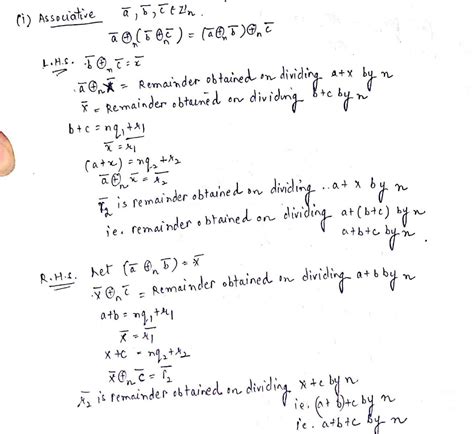 (i) Associative a̅, b̅, c̅ ∈ Z'n.
a̅ ⊕n (b̅ ⊕n c̅) = (a̅ ⊕n b̅) ⊕n c̅
L.H.S. b̅ ⊕n c̅ = x̅
a̅ ⊕n x̅ = Remainder obtained on dividing a+x by n
x̅ = Remainder obtained on dividing b+c by n
b+c = nq₁+r₁
x̅ = r₁
(a+x) = nq₂+r₂
a̅ ⊕n x̅ = r̅₂
r̅₂ is remainder obtained on dividing ..a+x by n
ie. remainder obtained on dividing a+(b+c) by n
a+b+c by n.
R.H.S. Let (a̅ ⊕n b̅) = x̅
x̅ ⊕n c̅ = Remainder obtained on dividing a+b by n
a+b = nq₁+r₁
x̅ = r̅₁
x+c = nq₂+r₂
x̅ ⊕n c̅ = r̅₂
r̅₂ is remainder obtained on dividing x+c by n
ie. (a+b)+c by n
ie. a+b+c by n